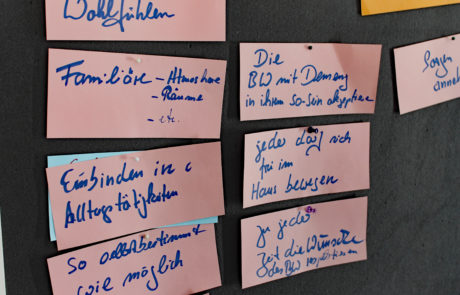 Wohlfühlen
Familiäre - Atmosphäre
- Räume
- etc.
Einbinden in
Alltagstätigkeiten
So selbstbestimmt
wie möglich
Die
BW mit Demenz
in ihrem so-sein akzeptieren
jeder darf sich
frei im
Haus bewegen
zu jeder
Zeit die Wünsche
des BW respektieren
Sorgen